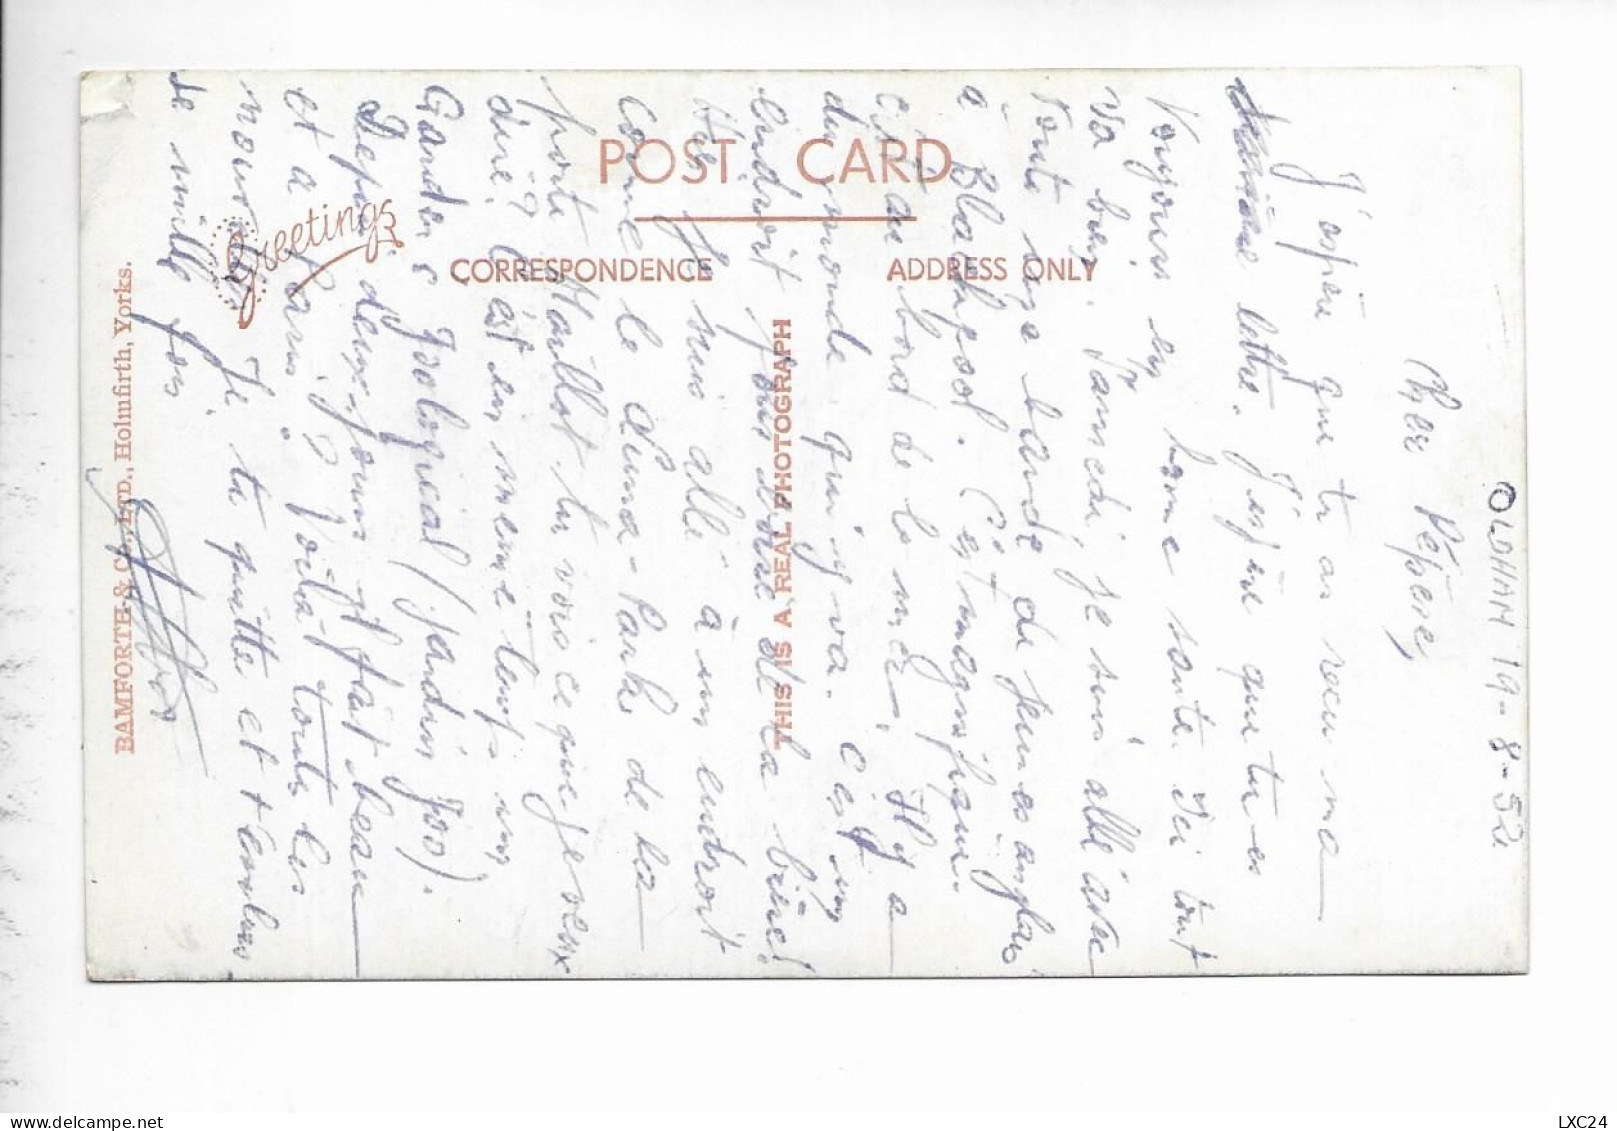 OLDHAM 19-8-52
Cher Pépère,
J'espère que tu as reçu ma
dernière lettre. J'espère que tu es
toujours en bonne santé. Ici tout
va bien. Samedi, je suis allé avec
toute une bande de jeunes anglais
à Blackpool. C'est magnifique.
C'est au bord de la mer. Il y a
du monde qui y va. C'est un
endroit pour boire de la bière!
Hier je suis allé à un endroit
comme le Luna-Park de la
porte Maillot tu vois ce que je veux
dire? C'est en même temps un
Garden Zoological (jardin zoo).
Depuis deux jours il fait beau
et à Paris? Voilà toutes les
nouvelles. Je te quitte et t'embrasse
de mille fois.
POST CARD
CORRESPONDENCE
ADDRESS ONLY
Greetings
THIS IS A REAL PHOTOGRAPH
BAMFORTH & Co., LTD., Holmfirth, Yorks.
www.delcampe.net
LXC24